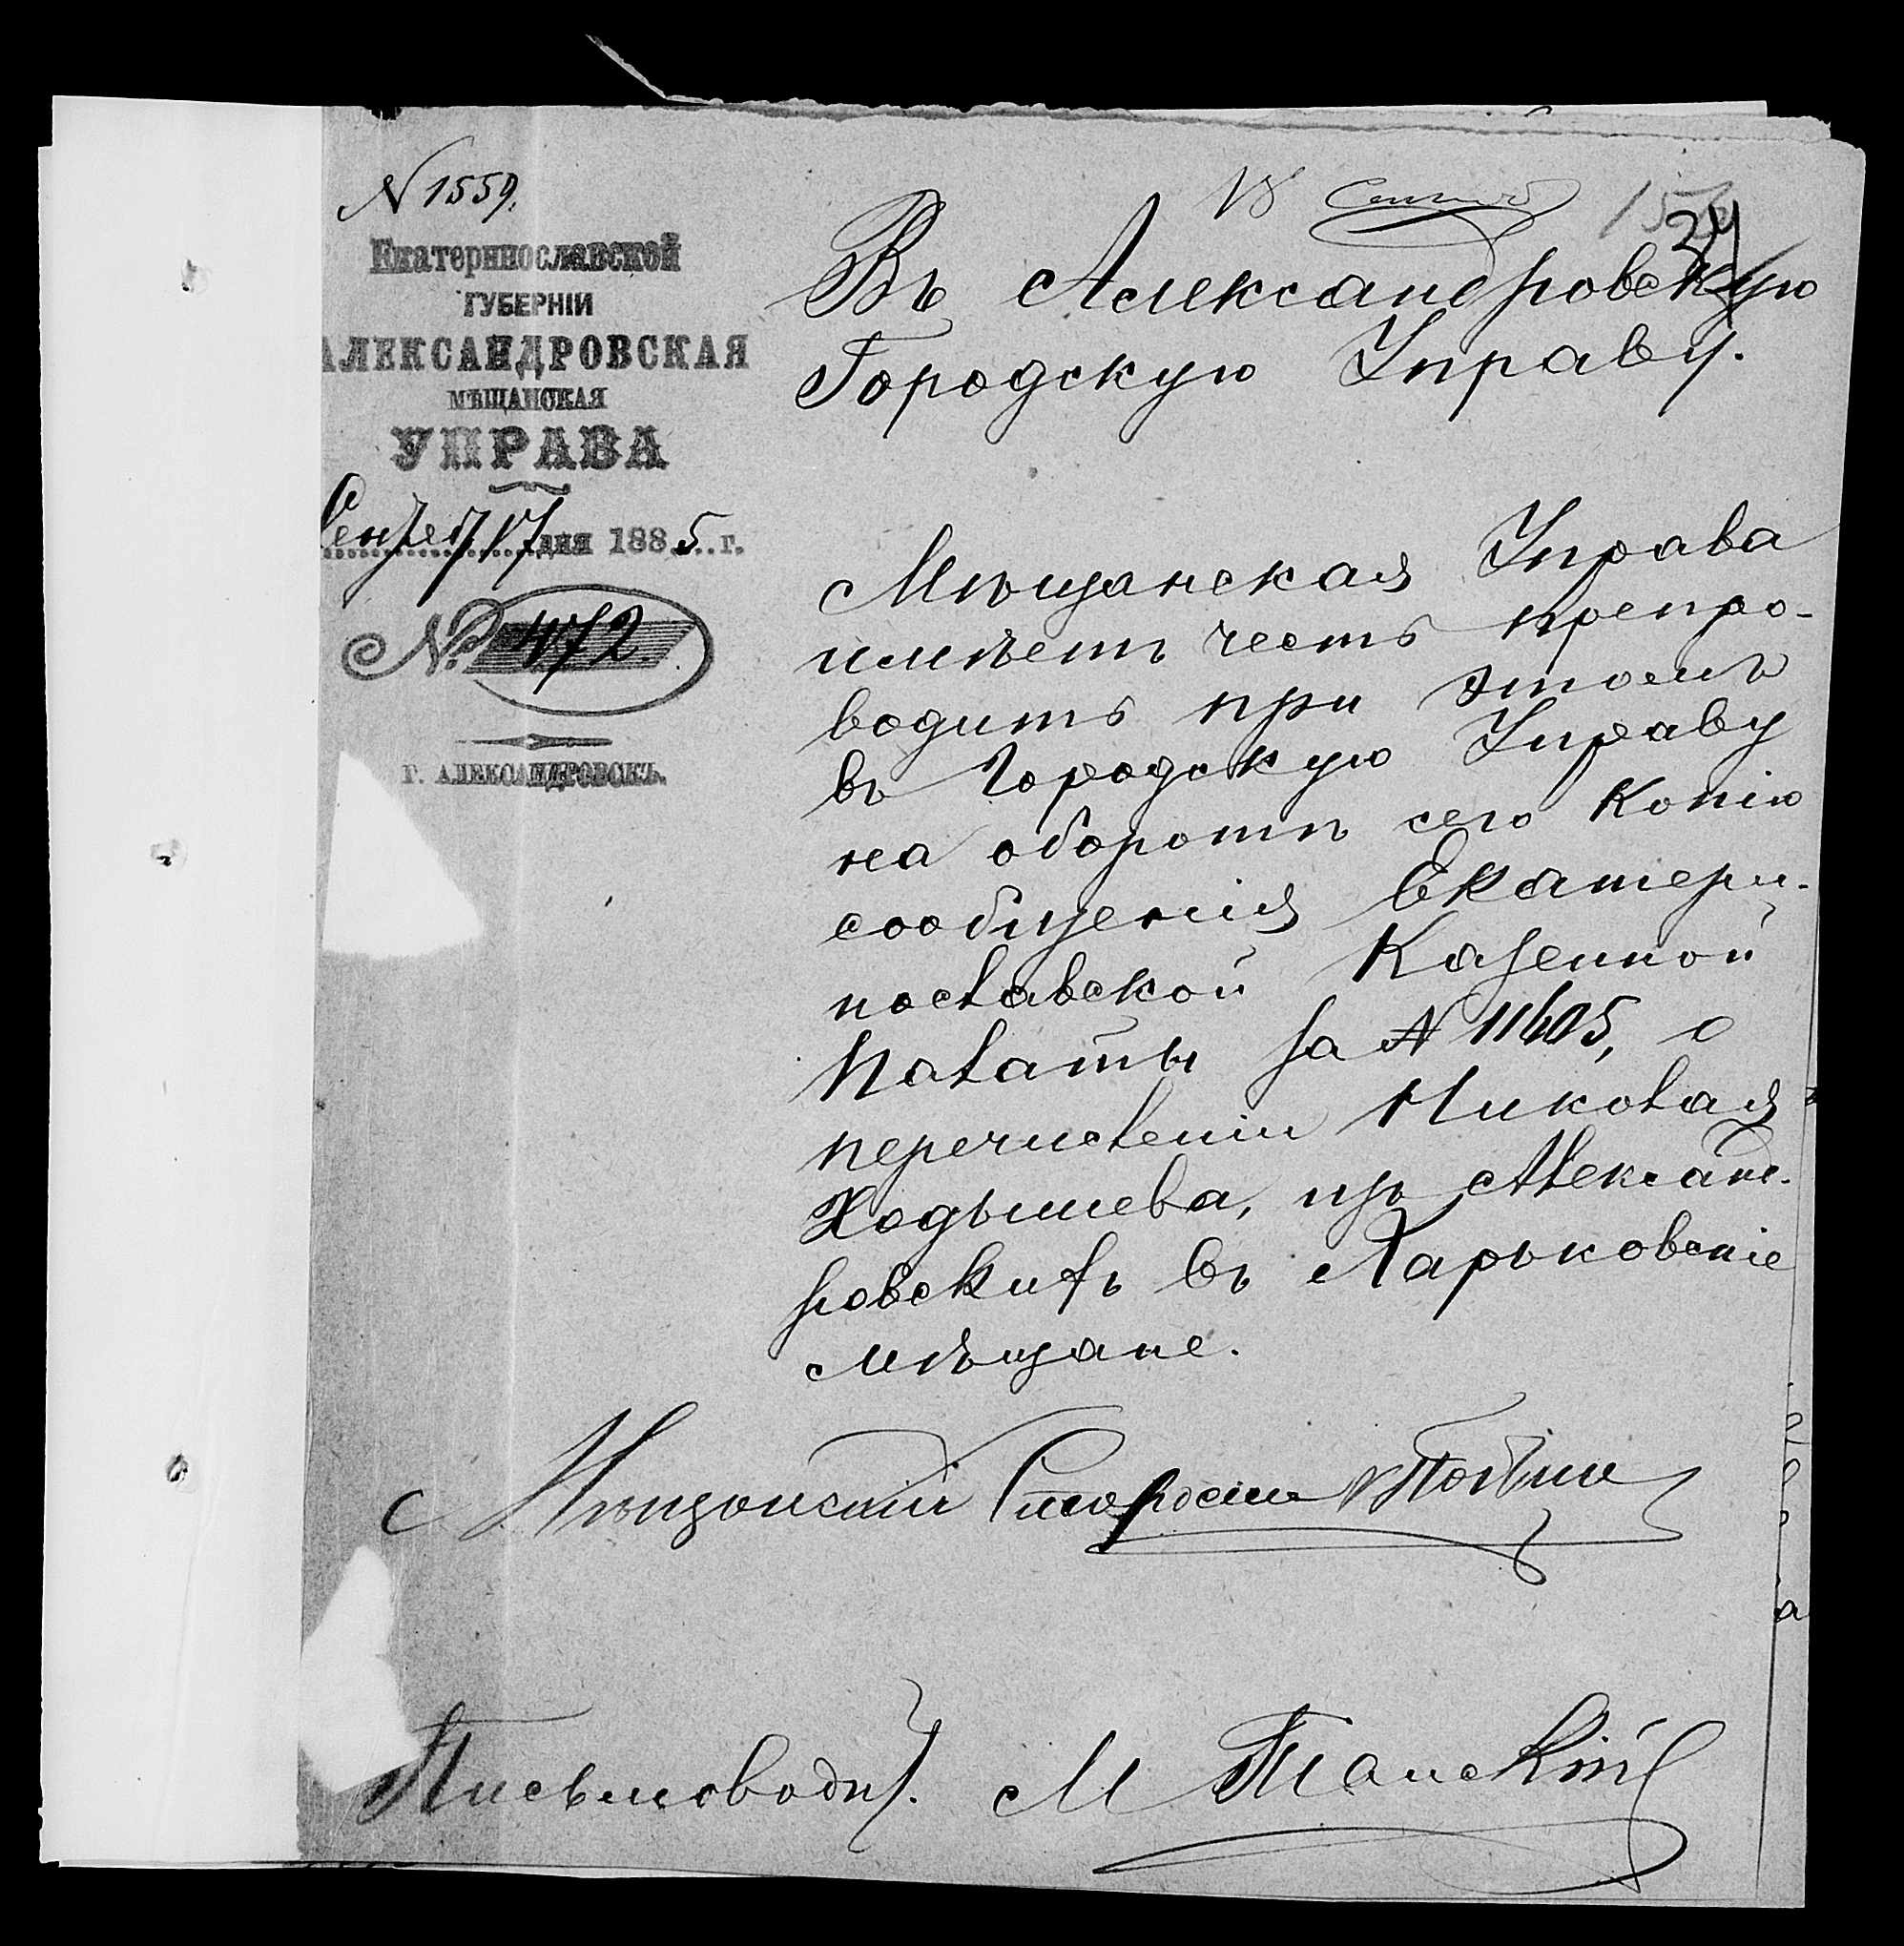 N 1559.
18 Сентяб
24
Екатеринославской
ГУБЕРНІИ
АЛЕКСАНДРОВСКАЯ
МѢЩАНСКАЯ
УПРАВА
17 дня 1885 г.
№ 472
Г. АЛЕКСАНДРОВСКЪ.
Въ Александровскую
Городскую Управу.
Мѣщанская Управа
имѣетъ честь препро-
водить при этомъ
въ Городскую Управу
на оборотѣ сего Копію
сообщенія Екатери-
нославской Казенной
Палаты за N 11605, о
перечисленіи Николая
Ходышева, изъ Александ-
ровскихъ въ Харьковскіе
мѣщане.
Мѣщанскій Староста
Письмовод. М